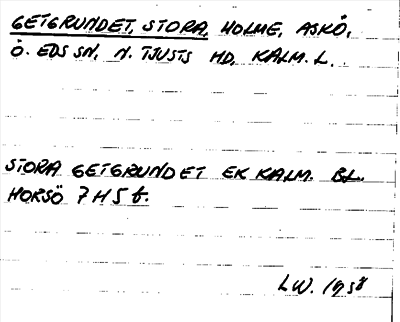 GETGRUNDET, STORA, HOLME, ASKÖ,
Ö. EDS SN, N. TJUSTS HD, KALM. L.
STORA GETGRUNDET EK KALM. BL.
HORSÖ 7 H 5 f.
LW. 1958